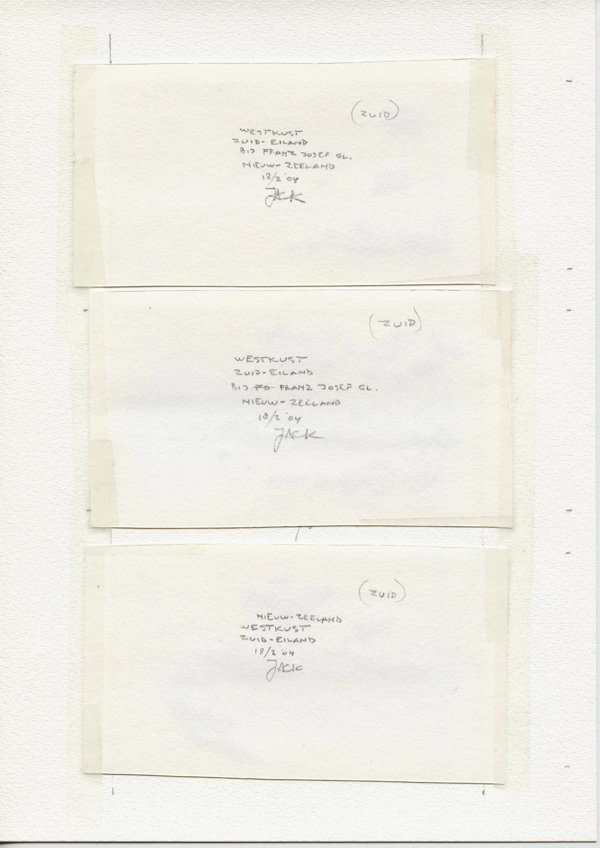 (ZUID)
WESTKUST
ZUID-EILAND
BIJ FRANZ JOSEF GL.
NIEUW-ZEELAND
18/2 '04
JACK
(ZUID)
WESTKUST
ZUID-EILAND
BIJ FRANZ JOSEF GL.
NIEUW-ZEELAND
18/2 '04
JACK
(ZUID)
NIEUW-ZEELAND
WESTKUST
ZUID-EILAND
18/2 '04
JACK